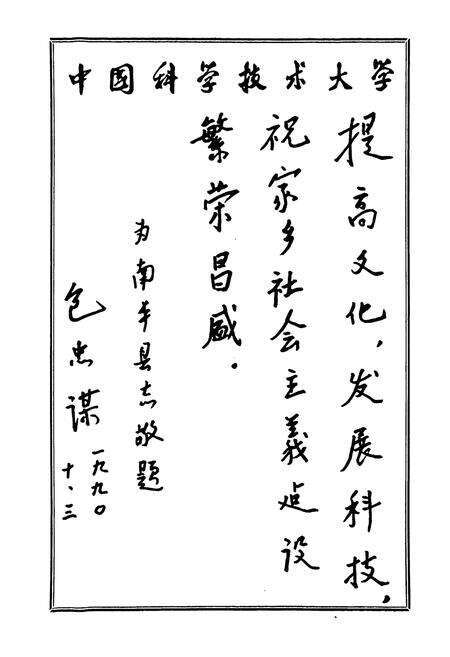 中国科学技术大学
提高文化，发展科技，
祝家乡社会主义建设
繁荣昌盛。
为南丰县志敬题
包忠谋
一九九〇
十、三